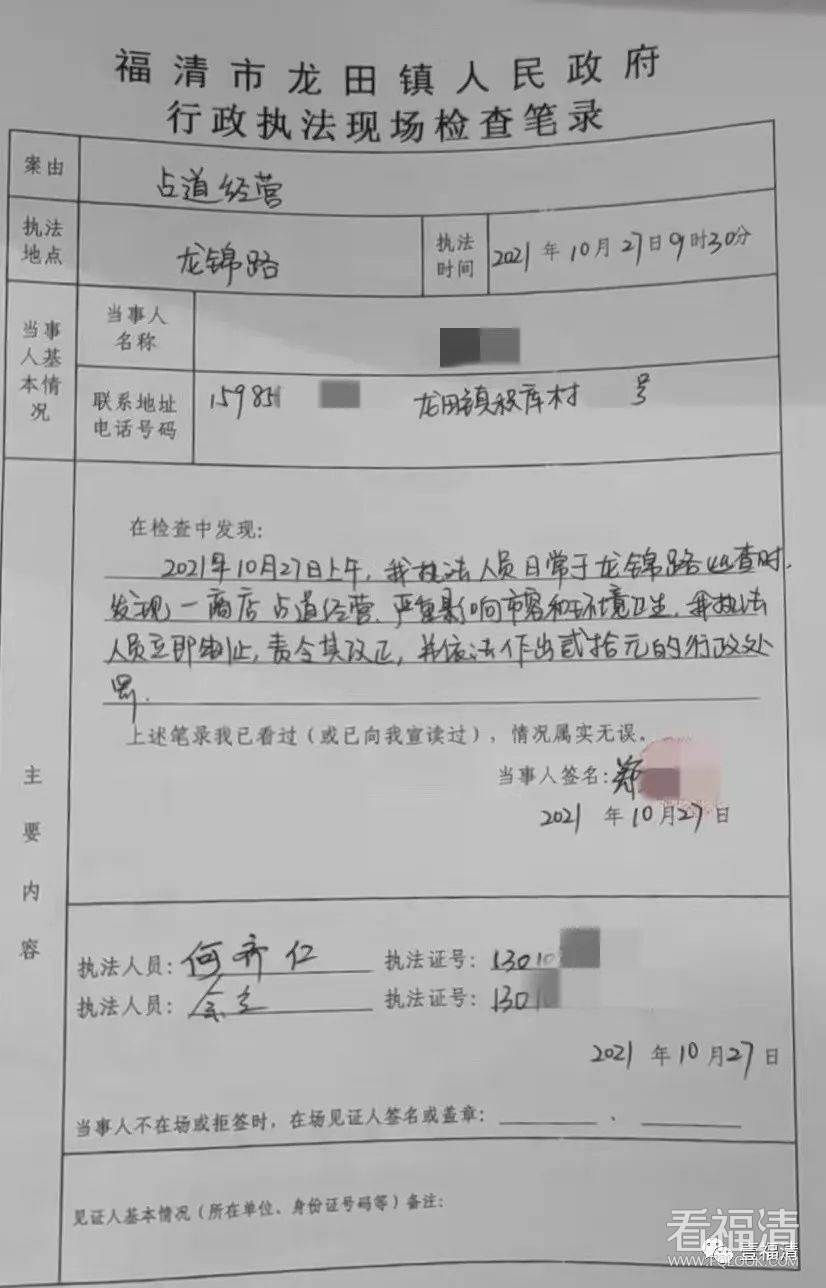 福清市龙田镇人民政府
行政执法现场检查笔录
案由
占道经营
执法地点
龙锦路
执法时间
2021年10月27日9时30分
当事人基本情况
当事人名称
联系地址电话号码
15985 龙田镇积库村 号
主要内容
在检查中发现:
2021年10月27日上午,我执法人员日常于龙锦路巡查时,
发现一商店占道经营.严重影响市容和环境卫生.我执法
人员立即制止,责令其改正,并依法作出贰拾元的行政处
罚.
上述笔录我已看过(或已向我宣读过),情况属实无误。
当事人签名:郑
2021年10月27日
执法人员:何齐仁 执法证号:13010
执法人员: 执法证号:1301
2021年10月27日
当事人不在场或拒签时,在场见证人签名或盖章: 、
见证人基本情况(所在单位、身份证号码等)备注:
看福清
壹福清
WWW.FQLOOK.COM